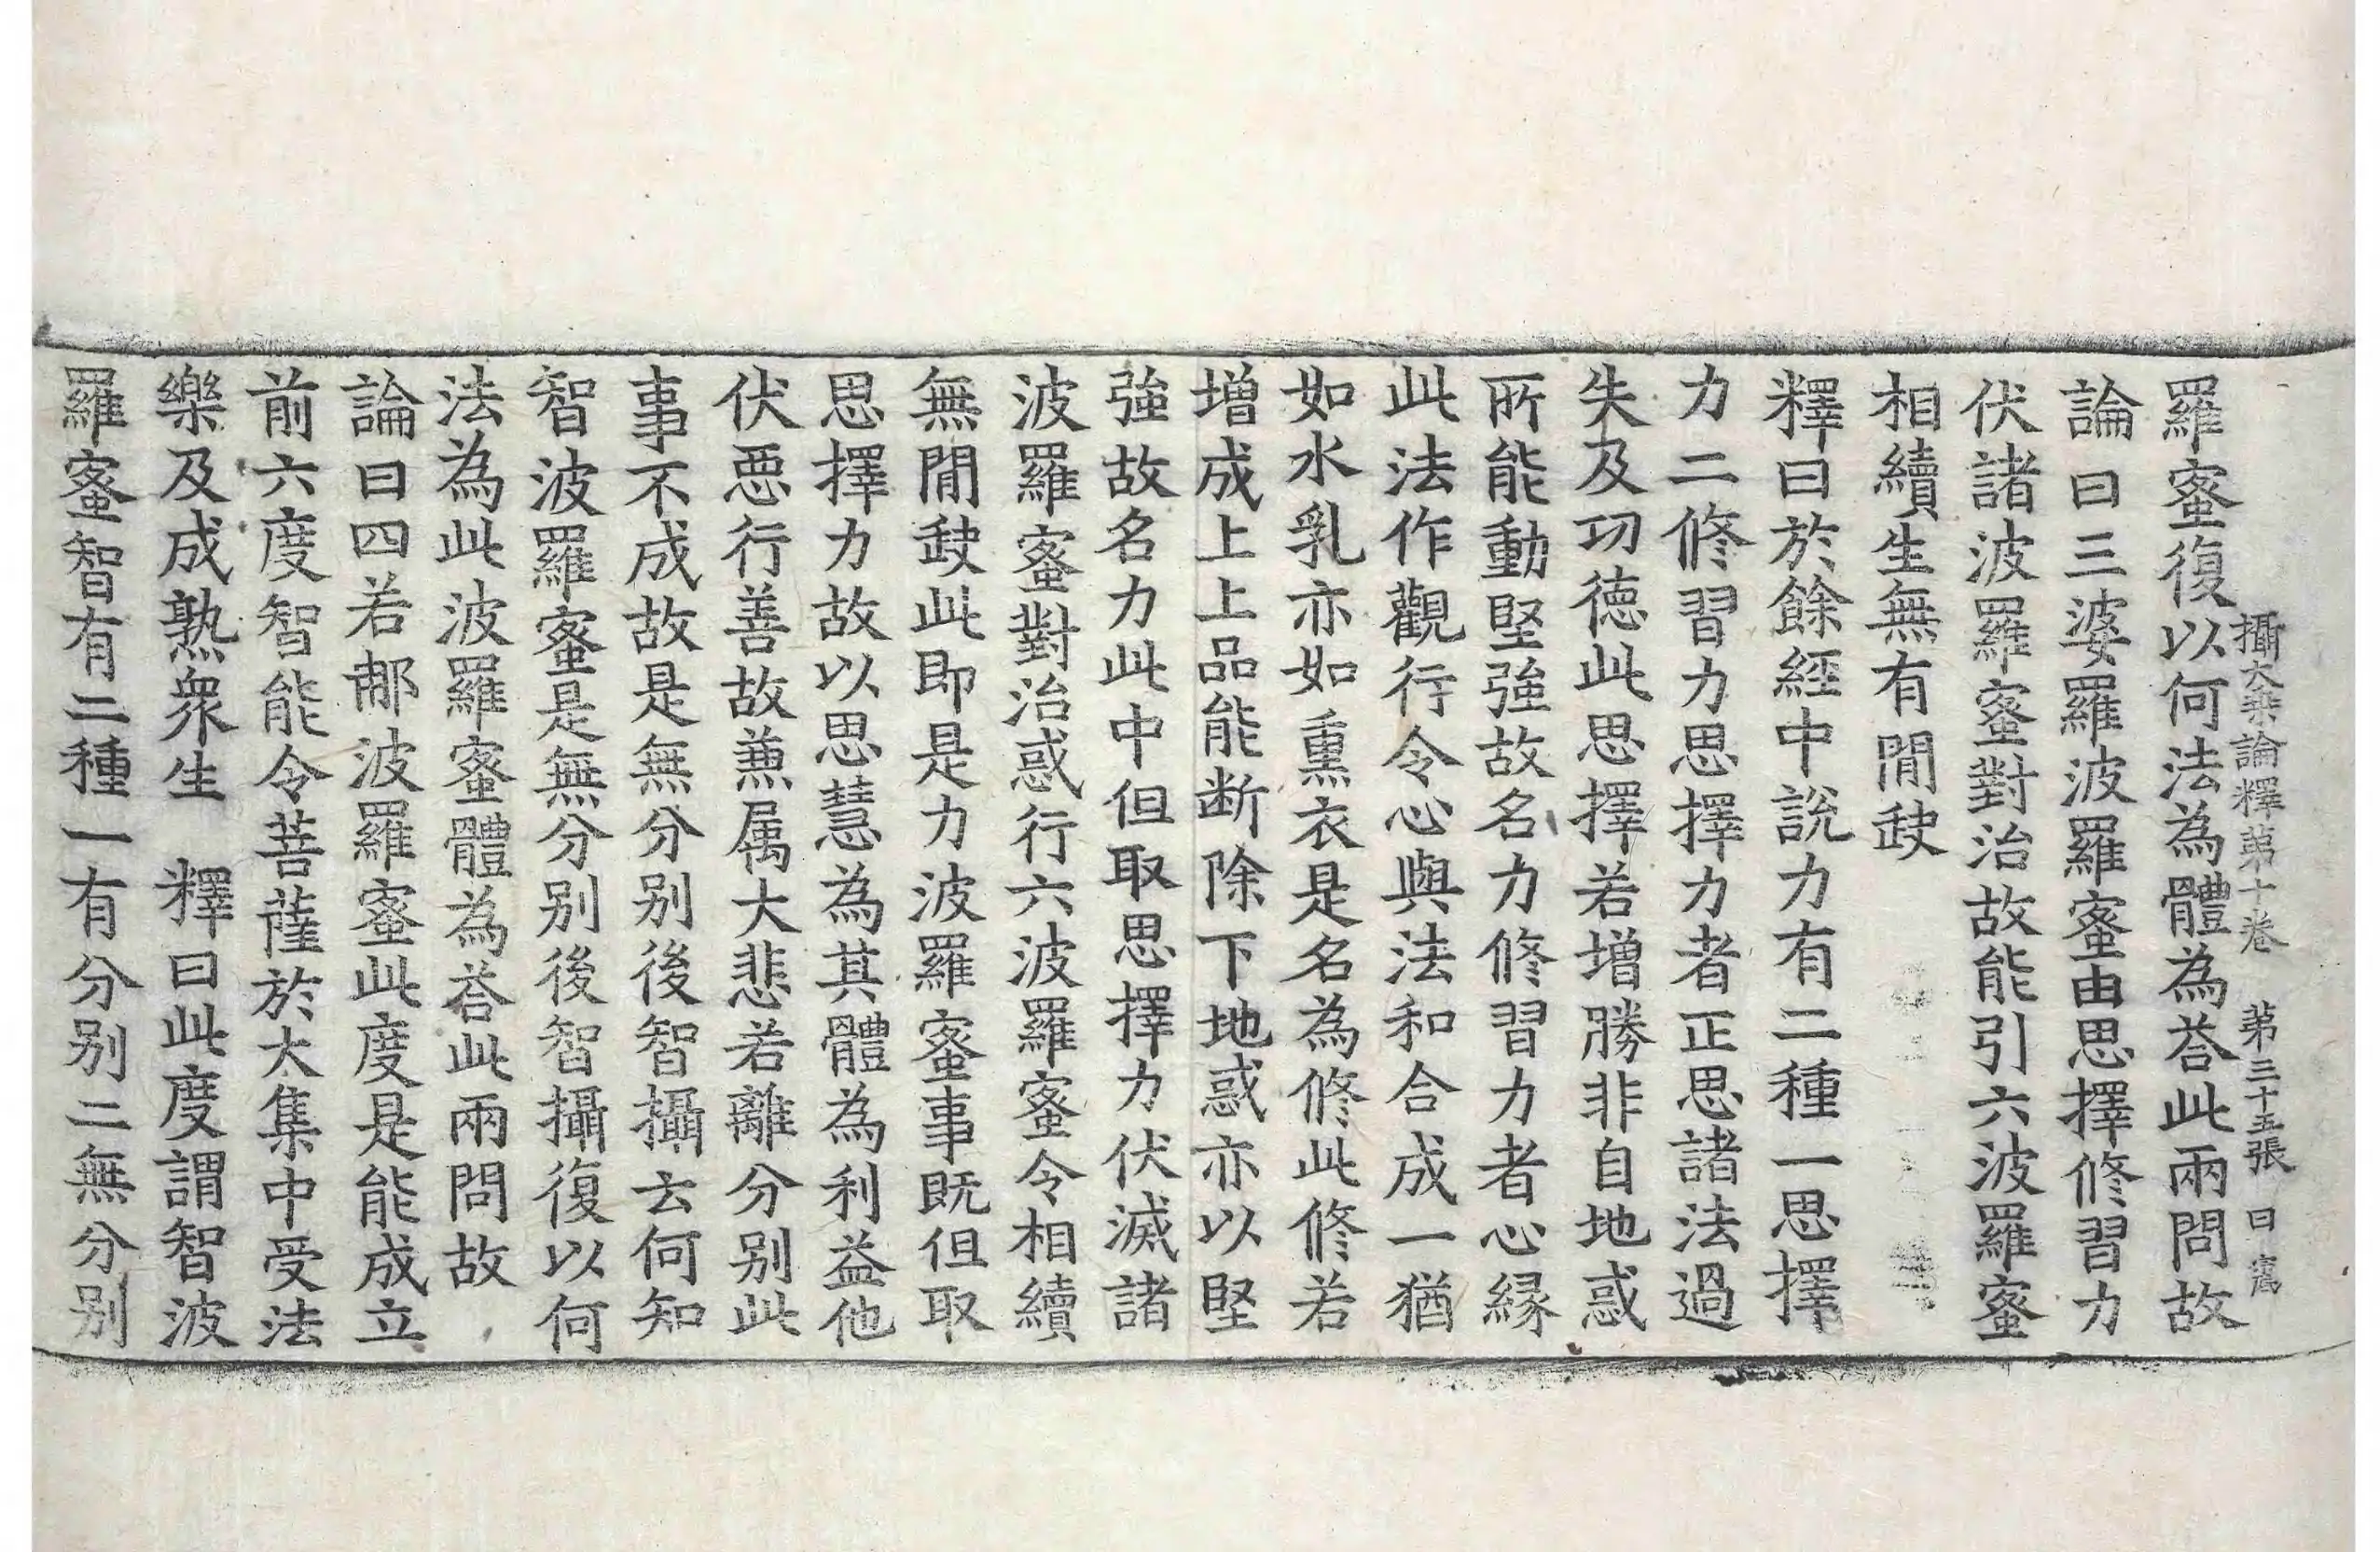 攝大乗論釋第十卷 第三十五張 日
羅蜜復以何法為體為荅此兩問故
論曰三婆羅波羅蜜由思擇修習力
伏諸波羅蜜對治故能引六波羅蜜
相續生無有閒𡙇
釋曰於餘經中說力有二種一思擇
力二修習力思擇力者正思諸法過
失及功德此思擇若增勝非自地惑
所能動堅強故名力修習力者心緣
此法作觀行令心與法和合成一猶
如水乳亦如熏衣是名為修此修若
增成上上品能断除下地惑亦以堅
強故名力此中但取思擇力伏滅諸
波羅蜜對治惑行六波羅蜜令相續
無閒𡙇此即是力波羅蜜事既但取
思擇力故以思慧為其體為利益他
伏惡行善故兼属大悲若離分别此
事不成故是無分别後智攝云何知
智波羅蜜是無分别後智攝復以何
法為此波羅蜜體為荅此兩問故
論曰四若那波羅蜜此度是能成立
前六度智能令菩薩於大集中受法
樂及成熟衆生 釋曰此度謂智波
羅蜜智有二種一有分别二無分别